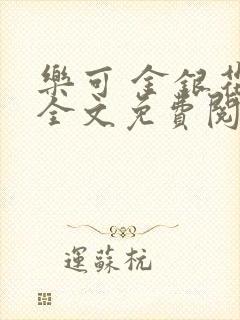 樂可 金銀花
全文免費閱
運蘇杭